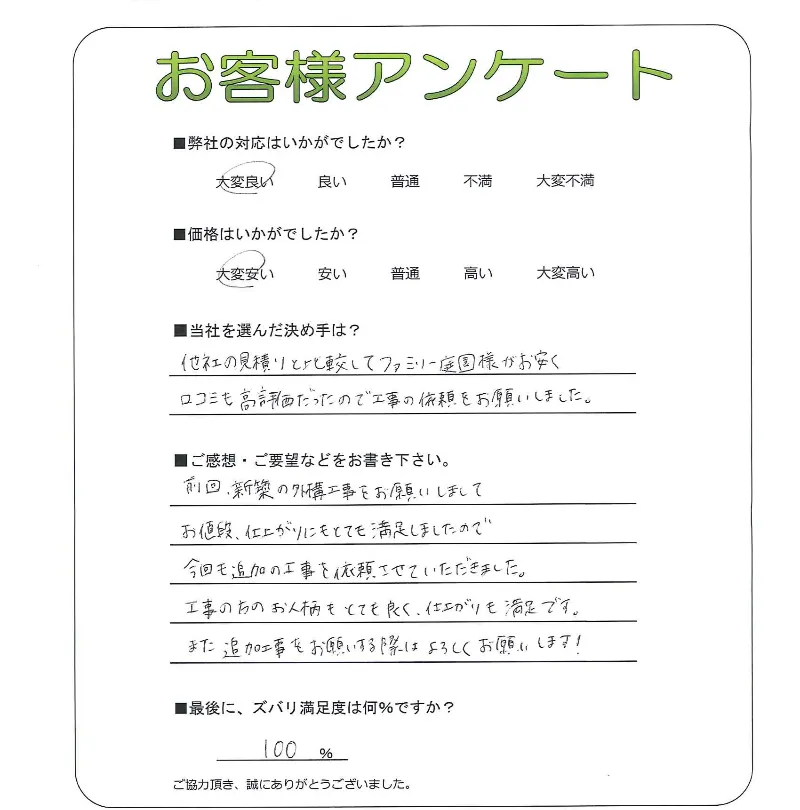 お客様アンケート
■弊社の対応はいかがでしたか？
大変良い 良い 普通 不満 大変不満
■価格はいかがでしたか？
大変安い 安い 普通 高い 大変高い
■当社を選んだ決め手は？
他社の見積りと比較してファミリー庭園様がお安く
口コミも高評価だったので工事の依頼をお願いしました。
■ご感想・ご要望などをお書き下さい。
前回、新築の外構工事をお願いしまして
お値段、仕上がりにもとても満足しましたので
今回も追加の工事を依頼させていただきました。
工事の方のお人柄もとても良く、仕上がりも満足です。
また追加工事をお願いする際はよろしくお願いします！
■最後に、ズバリ満足度は何％ですか？
100 %
ご協力頂き、誠にありがとうございました。